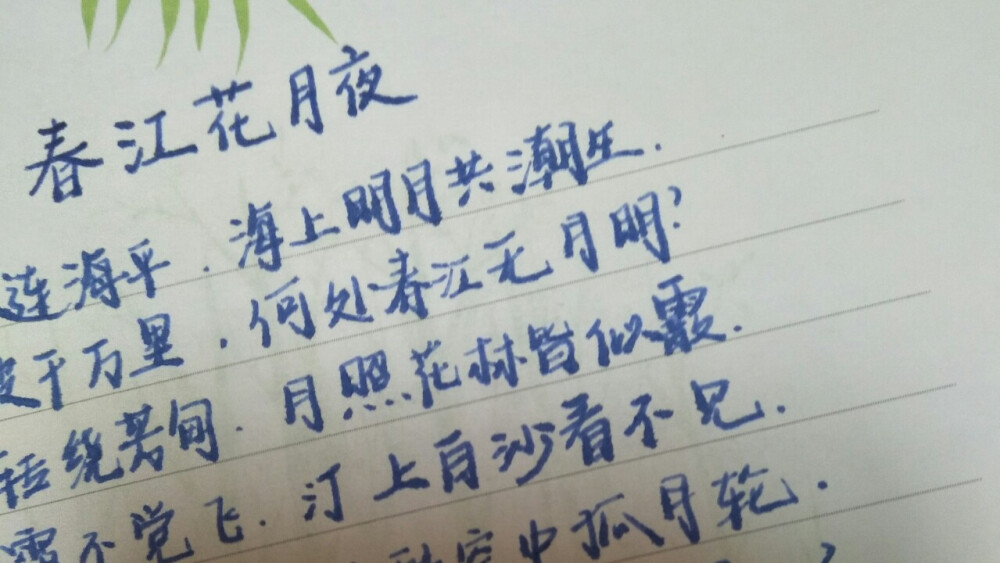 春江花月夜
连海平.海上明月共潮生.
千万里.何处春江无月明?
绕芳甸.月照花林皆似霰.
霜不觉飞.汀上白沙看不见.
空中孤月轮.